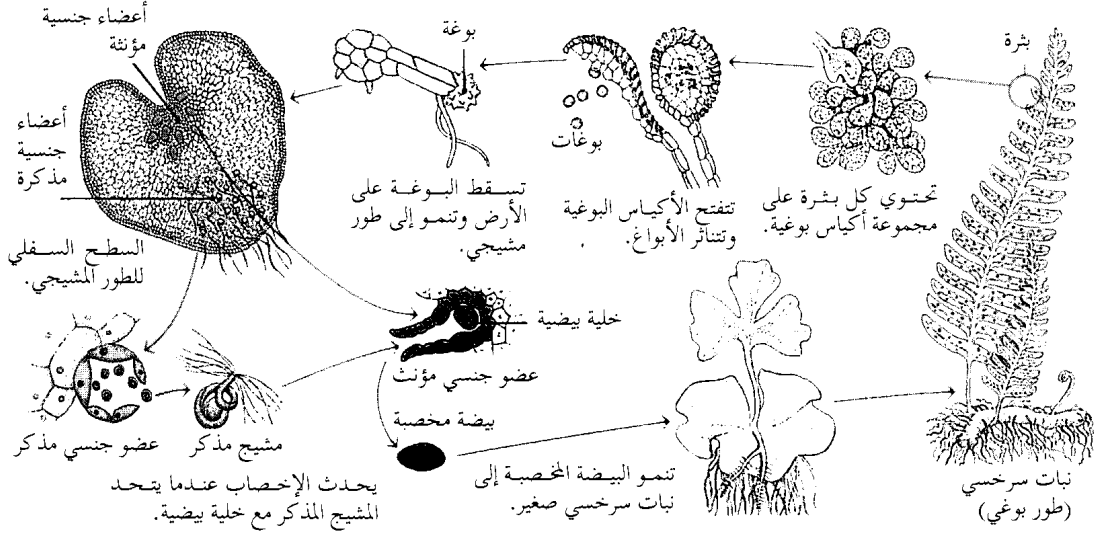 بثرة
تحتوي كل بثرة على
مجموعة أكياس بوغية.
بوغات
تتفتح الأكياس البوغية
وتتناثر الأبواغ.
بوغة
تسقط البوغة على
الأرض وتنمو إلى طور
مشيجي.
أعضاء جنسية
مؤنثة
أعضاء
جنسية
مذكرة
السطح السفلي
للطور المشيجي.
عضو جنسي مذكر
مشيج مذكر
خلية بيضية
عضو جنسي مؤنث
يحدث الإخصاب عندما يتحد
المشيج المذكر مع خلية بيضية.
بيضة مخصبة
تنمو البيضة المخصبة إلى
نبات سرخسي صغير.
نبات سرخسي
(طور بوغي)